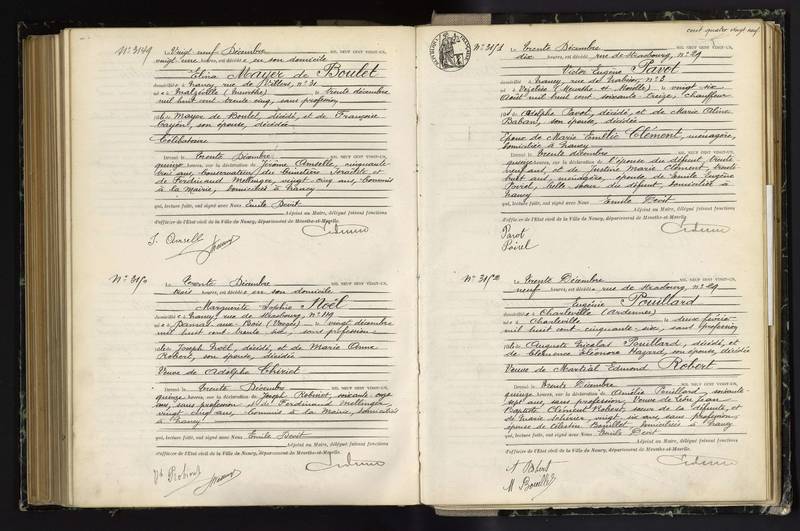 N° 3149
Le Vingt neuf Décembre MIL NEUF CENT VINGT-UN,
vingt une heures, est décédée en son domicile
Elina Mayer de Boulet
domiciliée à Nancy, rue de Villers, n° 31
née à Malzéville (Meurthe) le trente décembre
mil huit cent trente cinq, sans profession
fille de Mayer de Boulet, décédé, et de Françoise
son épouse, décédée
Célibataire
Dressé le trente Décembre MIL NEUF CENT VINGT-UN,
quinze heures, sur la déclaration de Jérôme Amselle, cinquante-
trois ans, Conservateur du Cimetière Israélite et
de Ferdinand Mellinger, vingt-cinq ans, Commis
à la Mairie, domiciliés à Nancy
qui, lecture faite, ont signé avec Nous Emile Devit
Adjoint au Maire, délégué faisant fonctions
d'officier de l'Etat civil de la Ville de Nancy, département de Meurthe-et-Moselle.
J. Amsell
N° 3150
Le Trente Décembre MIL NEUF CENT VINGT-UN,
trois heures, est décédée en son domicile
Marguerite Sophie Noël
domiciliée à Nancy, rue de Strasbourg, n° 119
née à Damas aux Bois (Vosges) le vingt décembre
mil huit cent trente six, sans profession
fille de Joseph Noël, décédé, et de Marie Anne
Robert, son épouse, décédée
Veuve de Adolphe Thiriet
Dressé le trente Décembre MIL NEUF CENT VINGT-UN,
quinze heures, sur la déclaration de Joseph Robinot, soixante-onze
ans, sans profession et de Ferdinand Mellinger
vingt cinq ans, Commis à la Mairie, domiciliés
à Nancy
qui, lecture faite, ont signé avec Nous Emile Devit
Adjoint au Maire, délégué faisant fonctions
d'officier de l'Etat civil de la Ville de Nancy, département de Meurthe-et-Moselle.
Robinot
cent quatre vingt neuf
N° 3151
Le trente Décembre MIL NEUF CENT VINGT-UN,
dix heures, est décédé rue de Strasbourg, n° 29
Victor Eugène Pavot
domicilié à Nancy, rue n° 3
né à Vézelise (Meurthe et Moselle) le vingt six
Août mil huit cent soixante-treize, chauffeur
fils de Adolphe Pavot, décédé, et de Marie Aline
Baban, son épouse, décédée
Epoux de Marie Emilie Clément, ménagère,
domiciliée à Nancy
Dressé le trente décembre MIL NEUF CENT VINGT-UN,
quinze heures, sur la déclaration de l'épouse du défunt, trente
neuf ans, et de Justine Marie Clément, trente
huit ans, ménagère, épouse de Emile Eugène
Poirel, belle sœur du défunt, domiciliées à
Nancy
qui, lecture faite, ont signé avec Nous Emile Devit
Adjoint au Maire, délégué faisant fonctions
d'officier de l'Etat civil de la Ville de Nancy, département de Meurthe-et-Moselle.
Pavot
Poirel
N° 3152
Le trente Décembre MIL NEUF CENT VINGT-UN,
neuf heures, est décédée rue de Strasbourg, n° 29
Eugénie Pouillard
domiciliée à Charleville (Ardennes)
née à Charleville le deux février
mil huit cent cinquante-six, sans profession
fille de Auguste Nicolas Pouillard, décédé, et
de Clémence Eléonore Hazard, son épouse, décédée
Veuve de Martial Edmond Robert
Dressé le trente Décembre MIL NEUF CENT VINGT-UN,
quinze heures, sur la déclaration de Amélie Pouillard, soixante-
sept ans, sans profession, Veuve de Léon Jean
Baptiste Clément Robert, sœur de la défunte, et
de Marie vingt six ans, sans profession
épouse de Célestin Bouillet, domiciliées à Nancy
qui, lecture faite, ont signé avec Nous Emile Devit
Adjoint au Maire, délégué faisant fonctions
d'officier de l'Etat civil de la Ville de Nancy, département de Meurthe-et-Moselle.
M Bouillet